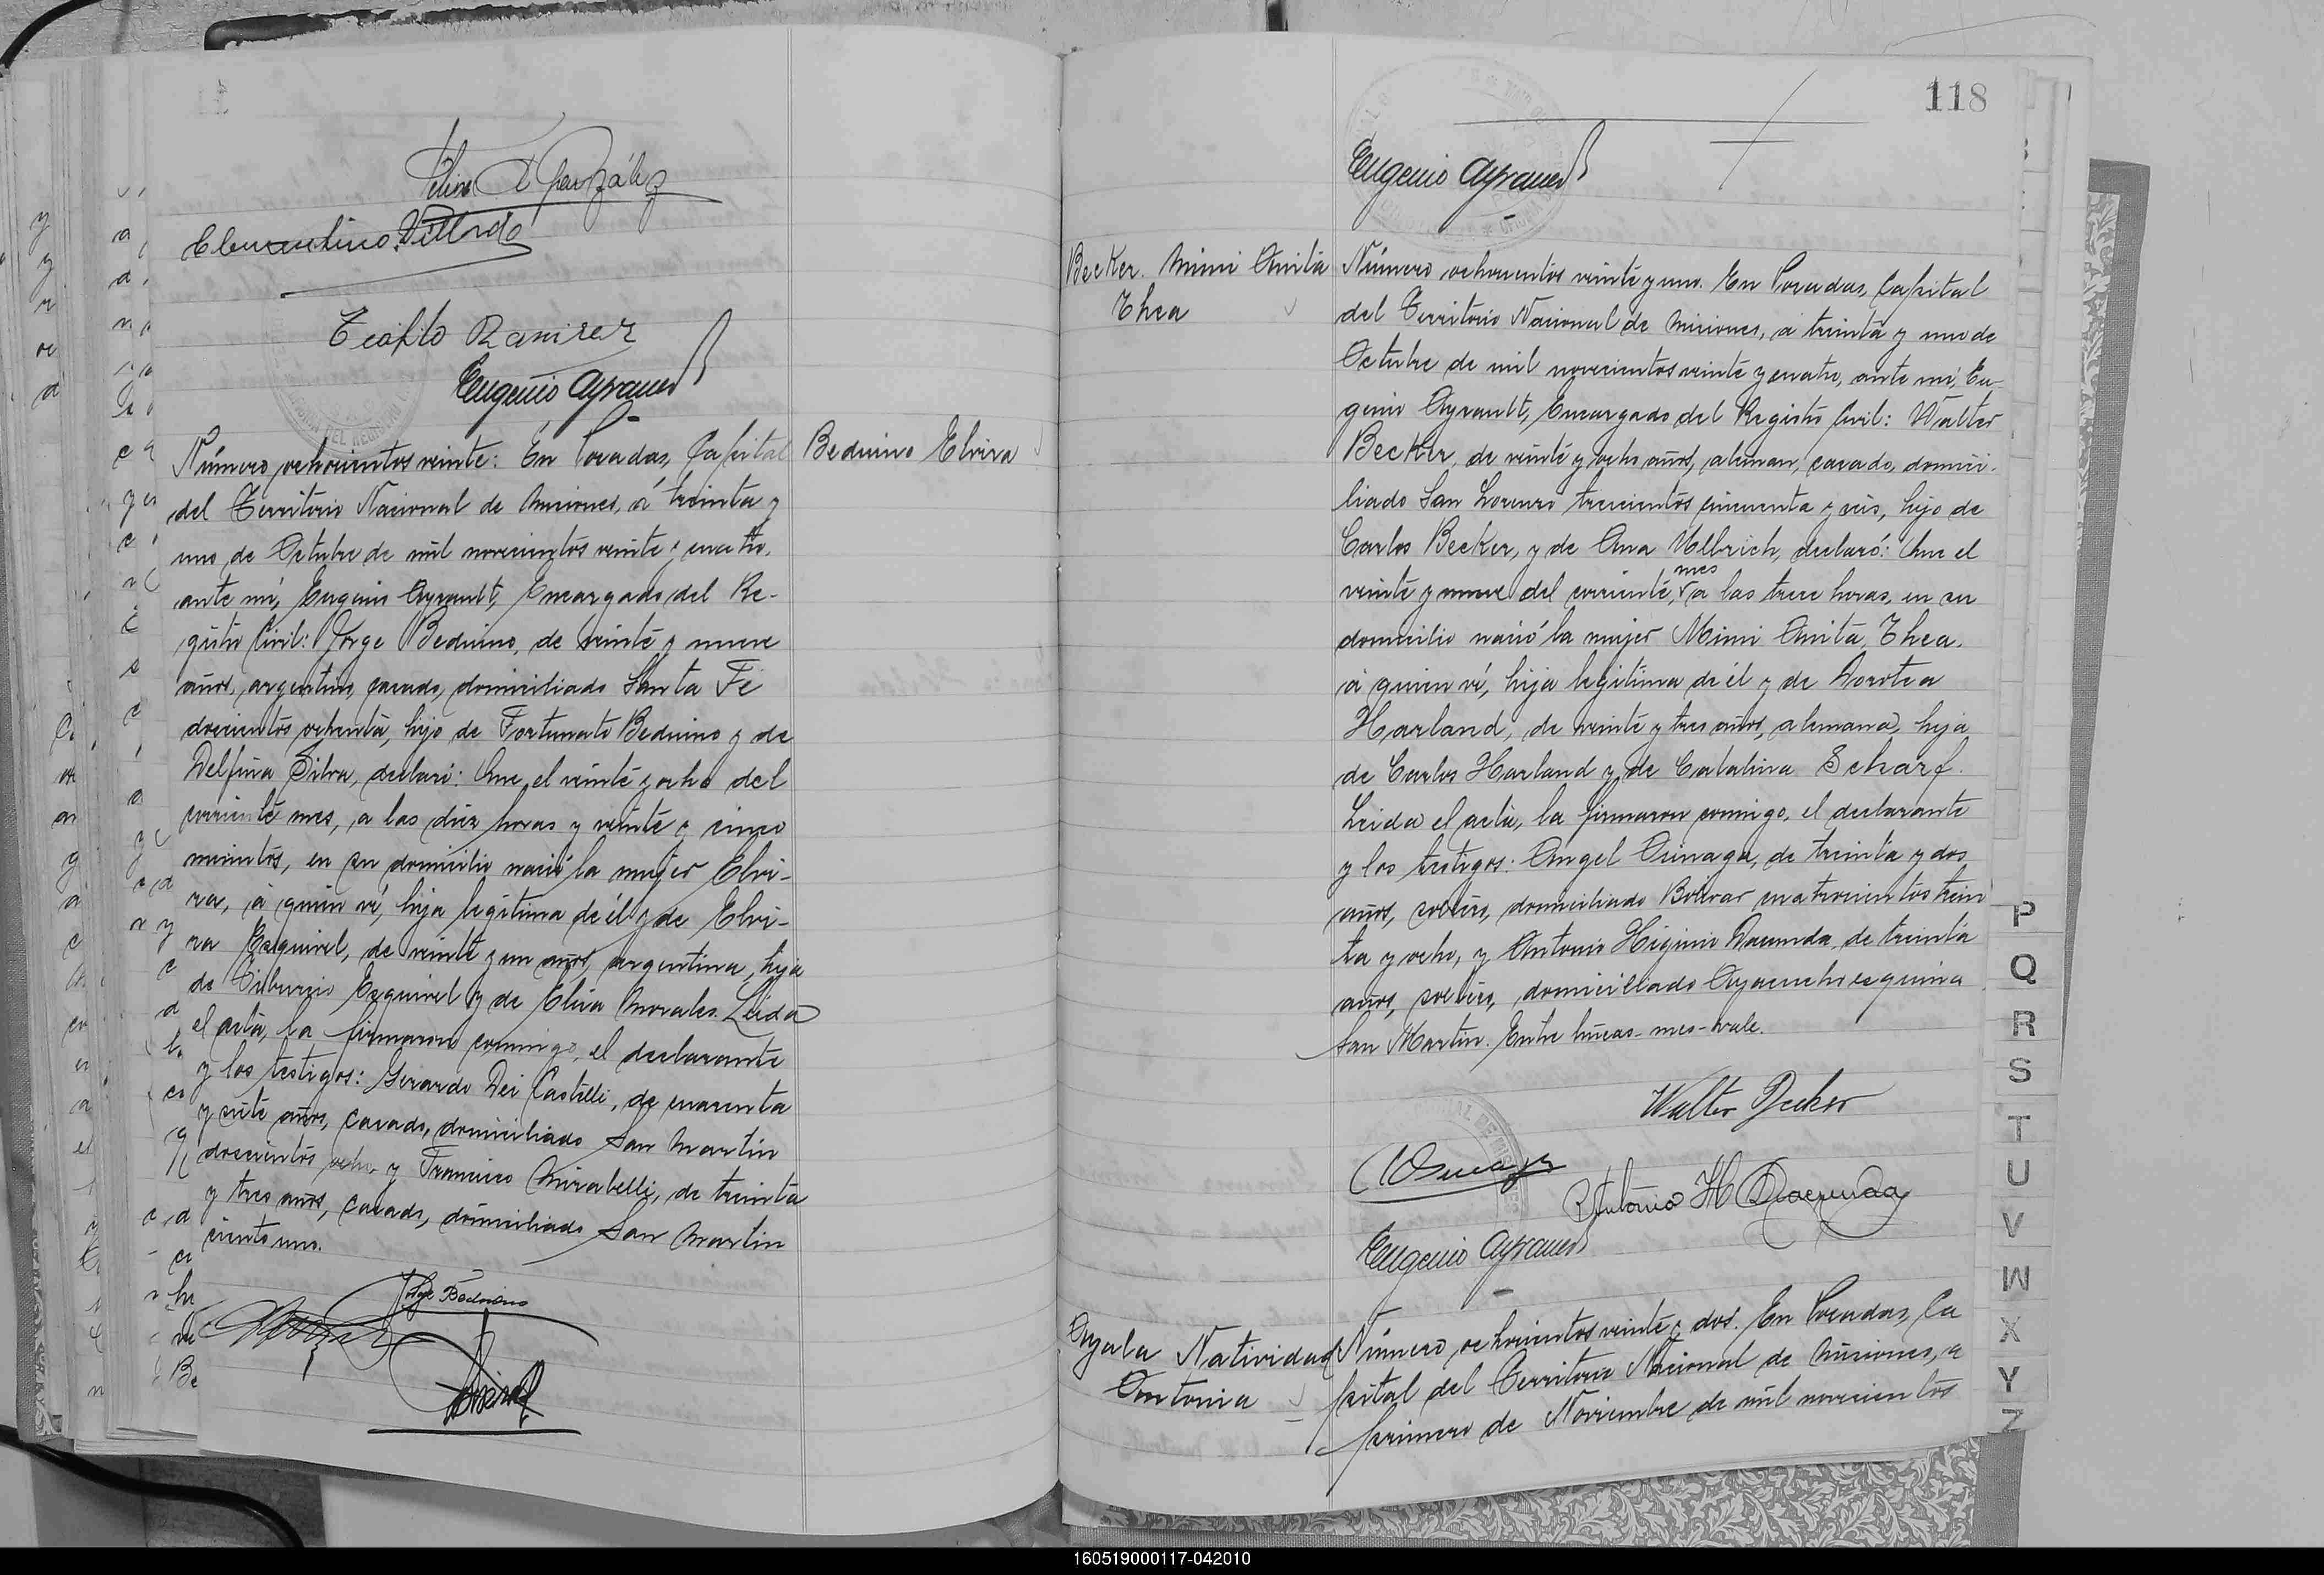 González
Clementino Villordo
Teófilo Ramirez
Eugenio Ayrault
Número ochocientos veinte: En Posadas, Capital
Beduino Elvira
del Territorio Nacional de Misiones, á treinta y
uno de Octubre de mil novecientos veinte y cuatro,
ante mí, Eugenio Ayrault, Encargado del Re-
gistro Civil: Jorge Beduino, de veinte y nueve
años, argentino, casado, domiciliado Santa Fé
doscientos ochenta, hijo de Fortunato Beduino y de
Delfina Silva, declaró: Que el veinte y ocho del
corriente mes, a las diez horas y veinte y cinco
minutos, en su domicilio nació la mujer Elvi-
ra, á quien ví, hija legítima de él y de Elvi-
ra Esquivel, de veinte y un años, argentina, hija
de Tiburcio Esquivel y de Elisa Morales. Leída
el acta, la firmaron conmigo, el declarante
y los testigos: Gerardo Dei Castelli, de cuarenta
y siete años, casado, domiciliado San Martin
doscientos ocho y Francisco Mirabelli, de treinta
y tres años, casado, domiciliado San Martin
ciento uno.
Jorge Beduino
118
Eugenio Ayrault
Becker. Mimi Anita
Thea
Número ochocientos veinte y uno. En Posadas, Capital
del Territorio Nacional de Misiones, á treinta y uno de
Octubre de mil novecientos veinte y cuatro, ante mí, Eu-
genio Ayrault, Encargado del Registro Civil: Walter
Becker, de veinte y ocho años, aleman, casado, domici-
liado San Lorenzo trescientos cincuenta y seis, hijo de
Carlos Becker, y de Ana Ulbrich, declaró: Que el
mes
veinte y nueve del corriente, a las trece horas, en su
domicilio nació la mujer Mimi Anita Thea.
á quien ví, hija legítima de él y de Dorotea
Harland, de veinte y tres años, alemana, hija
de Carlos Harland y de Catalina Scharf.
Leida el acta, la firmaron conmigo, el declarante
y los testigos: Angel Osinaga, de treinta y dos
años, soltero, domiciliado Bolivar cuatrocientos trein
ta y ocho, y Antonio Higinio Dacunda, de treinta
años, soltero, domiciliado Ayacucho esquina
San Martin. Entre líneas-mes-vale.
Walter Becker
Antonio H Dacunda
Eugenio Ayrault
Ayala Natividad
Antonia
Número ochocientos veinte y dos. En Posadas, Ca
pital del Territorio Nacional de Misiones, a
primero de Noviembre de mil novecientos
P
Q
R
S
T
U
V
W
X
Y
Z
160519000117-042010